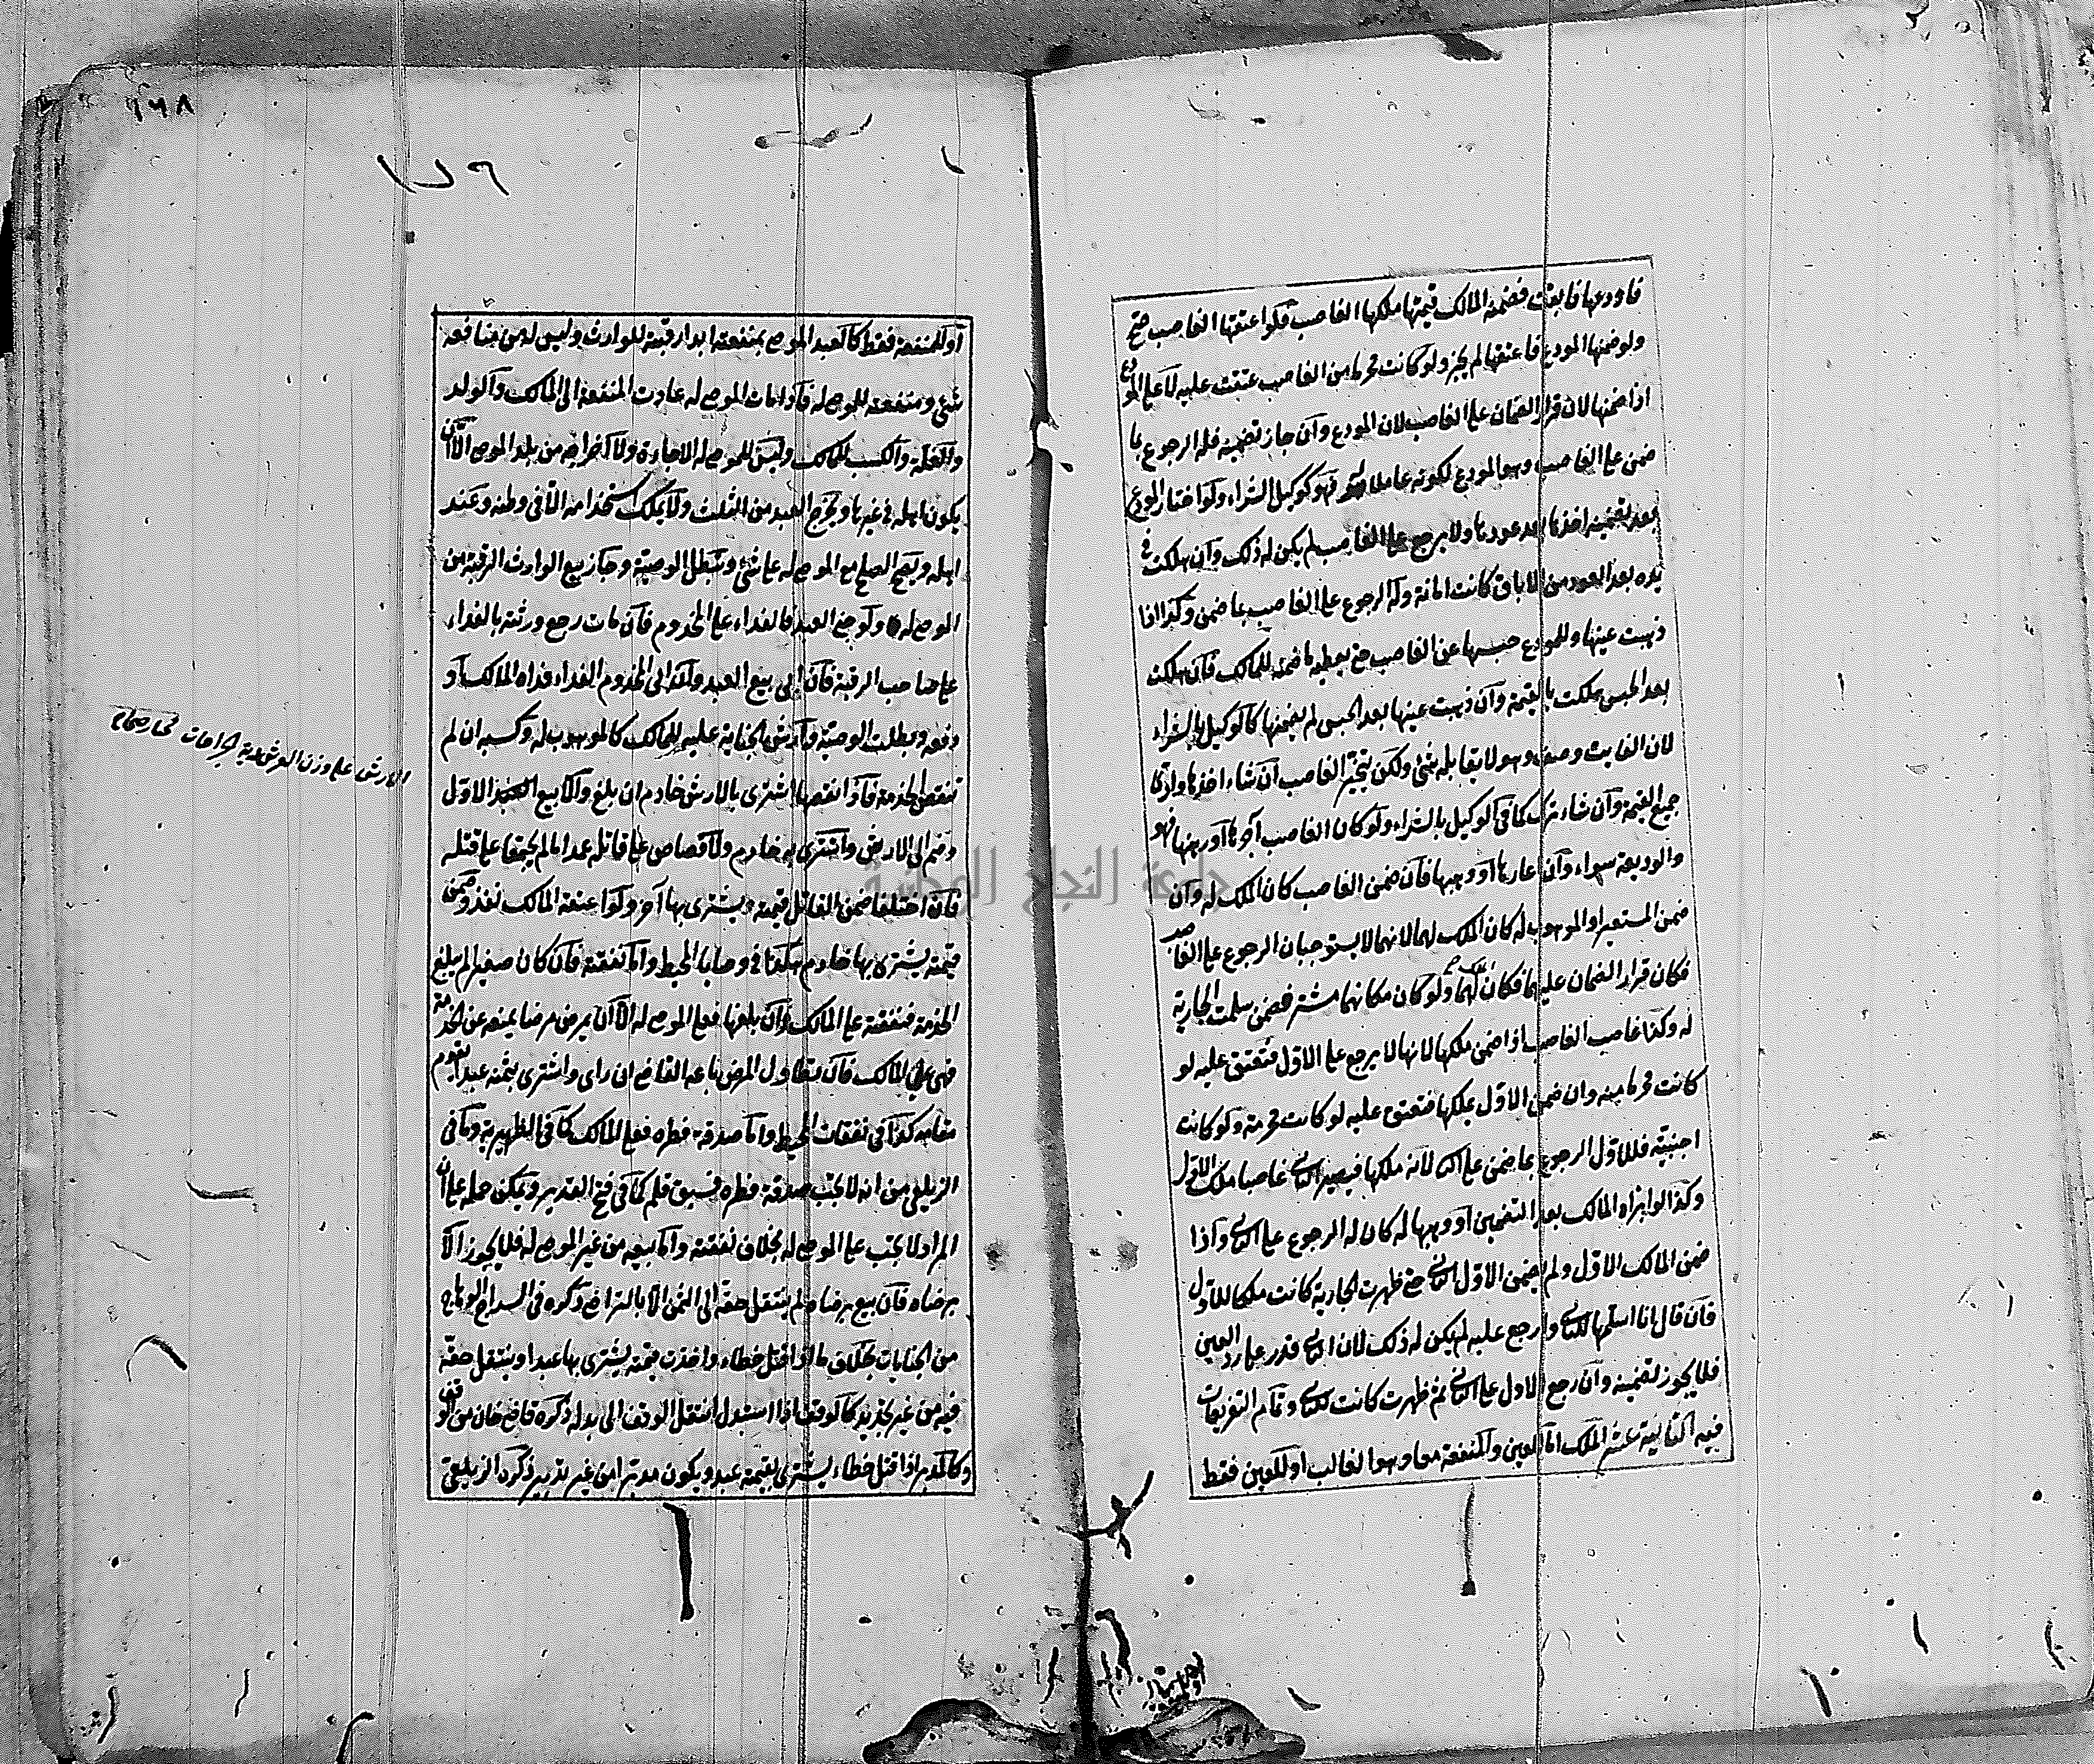 فاودعها فابقت فضمنه المالك قيمتها ملكها الغاصب فلو اعتقها الغاصب صح
ولو ضمنها المودع فاعتقها لم يجز ولو كانت محرما من الغاصب عتقت عليه لا على المودع
اذا ضمنها لان قرار الضمان على الغاصب لان المودع وان جاز تضمينه فله الرجوع بما
ضمن على الغاصب وهو المودع لكونه عاملا له فهو كوكيل الشراء ولو اختار المودع
بعد تضمينه اخذها بعد عودها ولا يرجع على الغاصب لم يكن له ذلك وان هلكت في
يده بعد العود من الاباق كانت امانة وله الرجوع على الغاصب بما ضمن وكذا اذا
ذهبت عينها وللمودع حبسها عن الغاصب حتى يعطيه ما ضمنه للمالك فان هلكت
بعد الحبس هلكت بالقيمة وان ذهبت عينها بعد الحبس لم يضمنها كالوكيل بالشراء
لان الفايت وصف وهو لا يقابله شئ ولكن يتخير الغاصب ان شاء اخذها وادى
جميع القيمة وان شاء ترك كما في الوكيل بالشراء ولو كان الغاصب اجرها او رهنها فهو
والوديعة سواء وان اعارها او وهبها فان ضمن الغاصب كان الملك له وان
ضمن المستعير او الموهوب له كان الملك لهما لانهما لا يستوجبان الرجوع على الغاصب
فكان قرار الضمان عليهما فكان الملك لهما ولو كان مكانهما مشتر فضمن سلمت الجارية
له وكذا غاصب الغاصب اذا ضمن ملكها لانها لا يرجع على الاول فتعتق عليه لو
كانت محرما منه وان ضمن الاول يملكها فتعتق عليه لو كانت محرمة ولو كانت
اجنبية فللاول الرجوع بما ضمن على الثاني لانه ملكها فيصير الثاني غاصبا ملك الاول
وكذا لو ابراه المالك بعد التضمين او وهبها له كان له الرجوع على الثاني واذا
ضمن المالك الاول ولم يضمن الاول الثاني حتى ظهرت الجارية كانت ملكا للاول
فان قال انا اسلمها للثاني وارجع عليه لم يكن له ذلك لان الثاني قدر على رد العين
فلا يجوز تضمينه وان رجع الاول على الثاني ثم ظهرت كانت للثاني وتمام التفريعات
فيه الثانية عشر الملك اما للعين والمنفعة معا وهو الغالب او للعين فقط
١٦٨
او للمنفعة فقط كالعبد الموصى بمنفعته ابدا رقبته للوارث وليس له من منافعه
شئ ومنفعته للموصى له فاذا مات الموصى له عادت المنفعة الى المالك والولد
والغلة والكسب للمالك وليس للموصى له الاجارة ولا اخراجه من بلد الموصى الا ان
يكون اهله في غيرها ويخرج العبد من الثلث ولا يملك استخدامه الا في وطنه وعند
اهله ويصح الصلح مع الموصى له على شئ وتبطل الوصية وجاز بيع الوارث الرقبة من
الموصى له ولو جنى العبد فالفداء على المخدوم فان مات رجع ورثته بالفداء
على صاحب الرقبة فان ابى بيع العبد وان ابى المخدوم الفداء فداه المالك او
دفعه وبطلت الوصية وارش الجناية عليه للمالك كالموهوب له وكسبه ان لم
تنقص الخدمة فاذا نقصها اشترى بالارش خادم ان بلغ والا بيع العبد الاول
وضم الى الارش واشترى به خادم ولا قصاص على قاتله عمدا ما لم يجتمعا على قتله
فان اختلفا ضمن القاتل قيمته يشترى بها اخر ولو اعتقه المالك نفذ وضمن
قيمته يشترى بها خادم هكذا في وصايا المحيط واما نفقته فان كان صغيرا لم يبلغ
الخدمة فنفقته على المالك وان بلغها فعلى الموصى له الا ان يمرض مرضا يمنعه عن الخدمة
فهي على المالك فان تطاول المرض باعه القاضي ان راى واشترى بثمنه عبدا يقوم
مقامه كذا في نفقات المحيط واما صدقة فطره فعلى المالك كما في الظهيرية وما في
الزيلعي من انه لا تجب صدقة فطره فسبق قلم كما في فتح القدير ويمكن حمله على ان
المراد لا تجب على الموصى له بخلاف نفقته واما بيعه من غير الموصى له فلا يجوز الا
برضاه فان بيع برضاه لم ينتقل حقه الى الثمن الا بالتراضي ذكره في السراج الوهاج
من الجنايات بخلاف ما اذا قتل خطاء واخذت قيمته يشترى بها عبدا وينتقل حقه
فيه من غير تجديد كالوقف اذا استبدل انتقل الوقف الى بدله ذكره قاضي خان من الوقف
وكالمدبر اذا قتل خطاء يشترى بقيمته عبد ويكون مدبرا من غير تدبير ذكره الزيلعي
الارش على وزن العرش دية الجراحات مختار صحاح
جامعة النجاح الوطنية